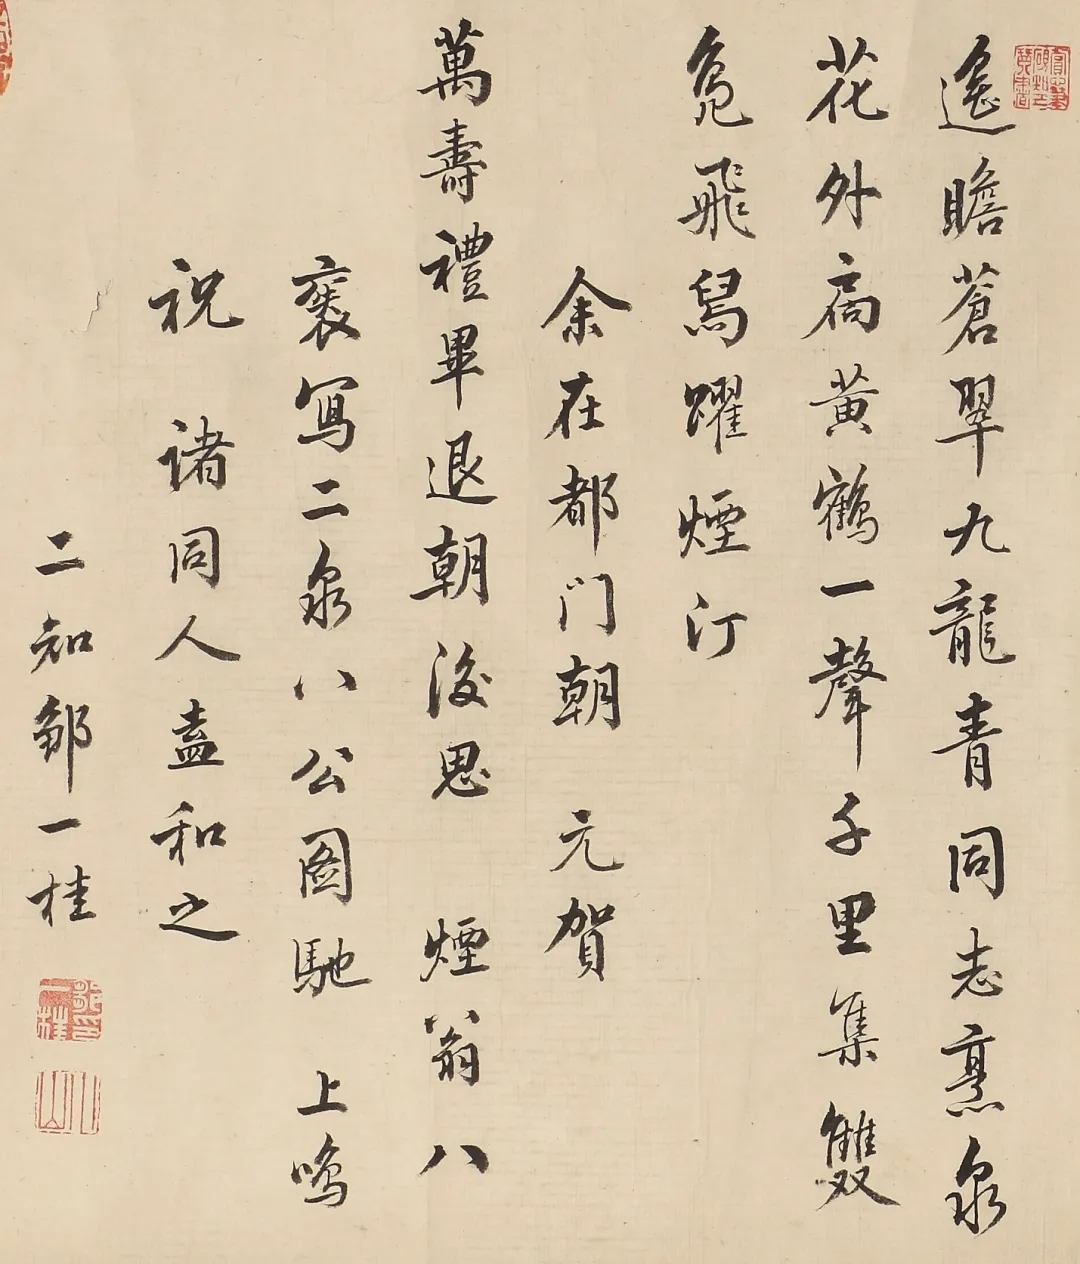 遙瞻蒼翠九龍青同志烹泉
花外扄黃鶴一聲千里集雙
鳧飛舄躍煙汀
余在都門朝 元賀
萬壽禮畢退朝後思 煙翁八
袠寫二泉八公圖馳 上鳴
祝 諸同人盍和之
二知鄒一桂
鄒一桂印
小山